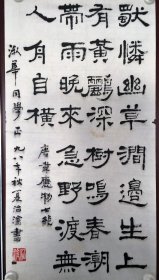 獨憐幽草澗邊生上
有黃鸝深樹鳴春潮
帶雨晚來急野渡無
人舟自橫 唐韋應物
淑華同學正 九八年秋夏書